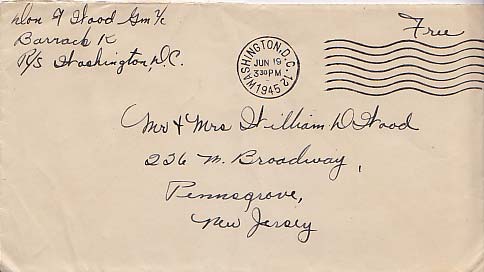 Don F Wood Gm ½c
Barrack K
R/S Washington, D.C.
Free
WASHINGTON, D.C. 12
JUN 19
330 PM
1945
Mr & Mrs William D Wood
236 N. Broadway,
Pennsgrove,
New Jersey